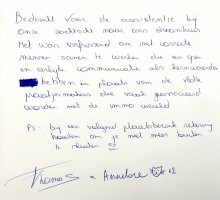 Bedankt voor de assistentie bij
onze zoektocht naar ons droomhuis.
Het was verfrissend om met correcte
mensen samen te werken die een open
en eerlijke communicatie als kernwaarde
hebben in plaats van de vele
praatjesmakers die vaak geassocieerd
worden met de immo wereld
Ps: bij een volgend plaatsbezoek rekening
houden om je niet meer buiten
te sluiten
Thomas & Annelore